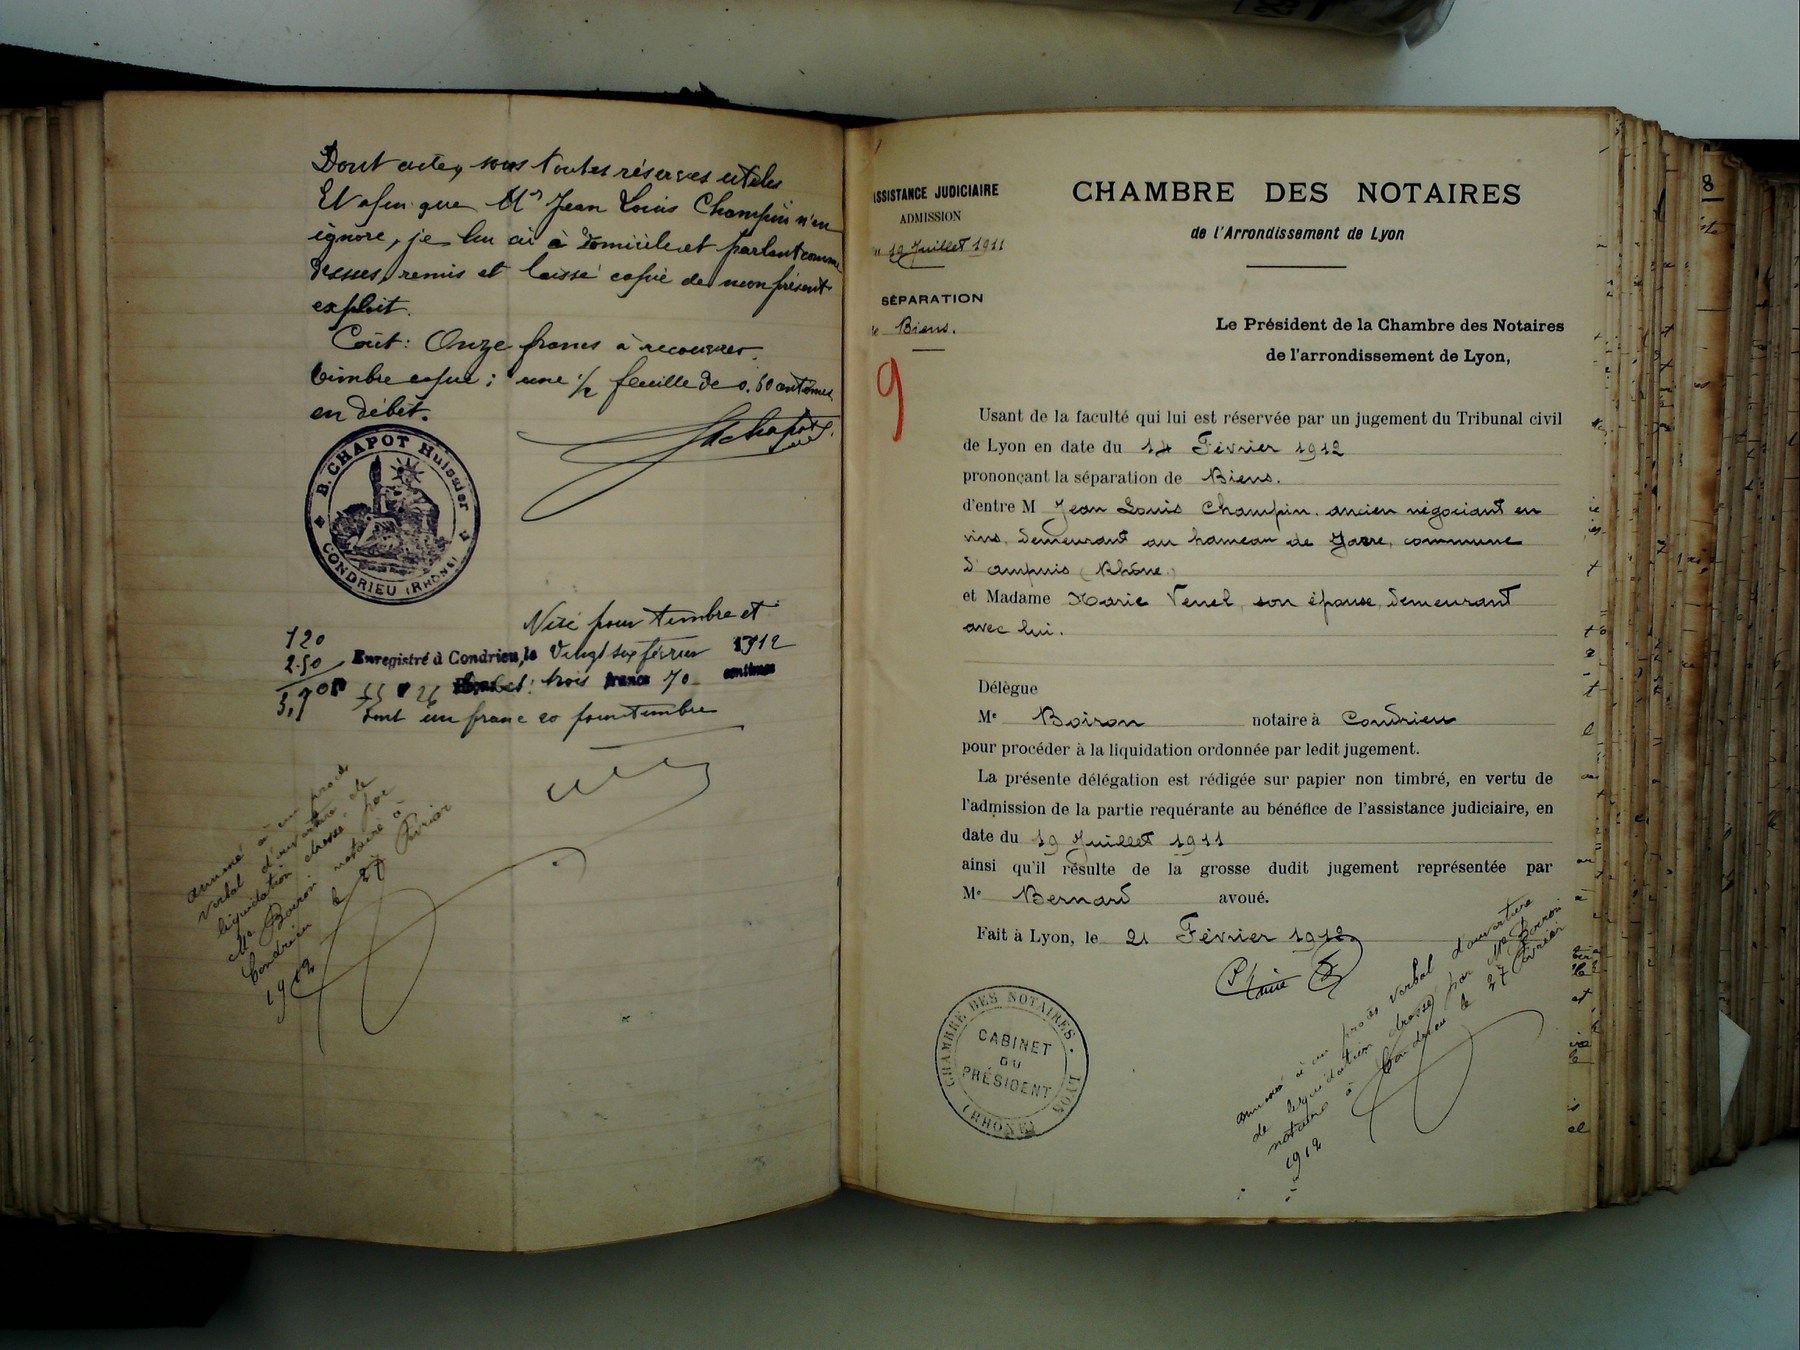 Dont acte, sous toutes réserves utiles
Et afin que Mr Jean Louis Champin n'en
ignore, je lui ai à domicile et parlant comme
dessus, remis et laissé copie de mon présent
exploit.
Coût: Onze francs à recouvrer.
timbre copie: une 1/2 feuille de 0.60 centimes
en débet.
B. CHAPOT Huissier
CONDRIEU (RHÔNE)
Visé pour timbre et
Enregistré à Condrieu, le Vingt six février 1912
120
2.50
3,70
trois francs 70 centimes
dont un franc 20 pour timbre
annexé à un procès
verbal d'ouverture de
liquidation dressé par
Me Boiron notaire à
Condrieu le 27 Février
1912
ASSISTANCE JUDICIAIRE
ADMISSION
19 Juillet 1911
SÉPARATION
de Biens.
9
CHAMBRE DES NOTAIRES
de l'Arrondissement de Lyon
Le Président de la Chambre des Notaires
de l'arrondissement de Lyon,
Usant de la faculté qui lui est réservée par un jugement du Tribunal civil
de Lyon en date du 14 Février 1912
prononçant la séparation de Biens.
d'entre M Jean Louis Champin, ancien négociant en
vins, demeurant au hameau de commune
d'ampuis (Rhône.)
et Madame Marie Venel, son épouse, demeurant
avec lui.
Délègue
Me Boiron notaire à Condrieu
pour procéder à la liquidation ordonnée par ledit jugement.
La présente délégation est rédigée sur papier non timbré, en vertu de
l'admission de la partie requérante au bénéfice de l'assistance judiciaire, en
date du 19 Juillet 1911
ainsi qu'il résulte de la grosse dudit jugement représentée par
Me Bernard avoué.
Fait à Lyon, le 21 Février 1912
CHAMBRE DES NOTAIRES. LYON
(RHONE)
CABINET
DU
PRÉSIDENT
annexé à un procès verbal d'ouverture
de liquidation dressé par Me Boiron
notaire à Condrieu le 27 Février
1912
8